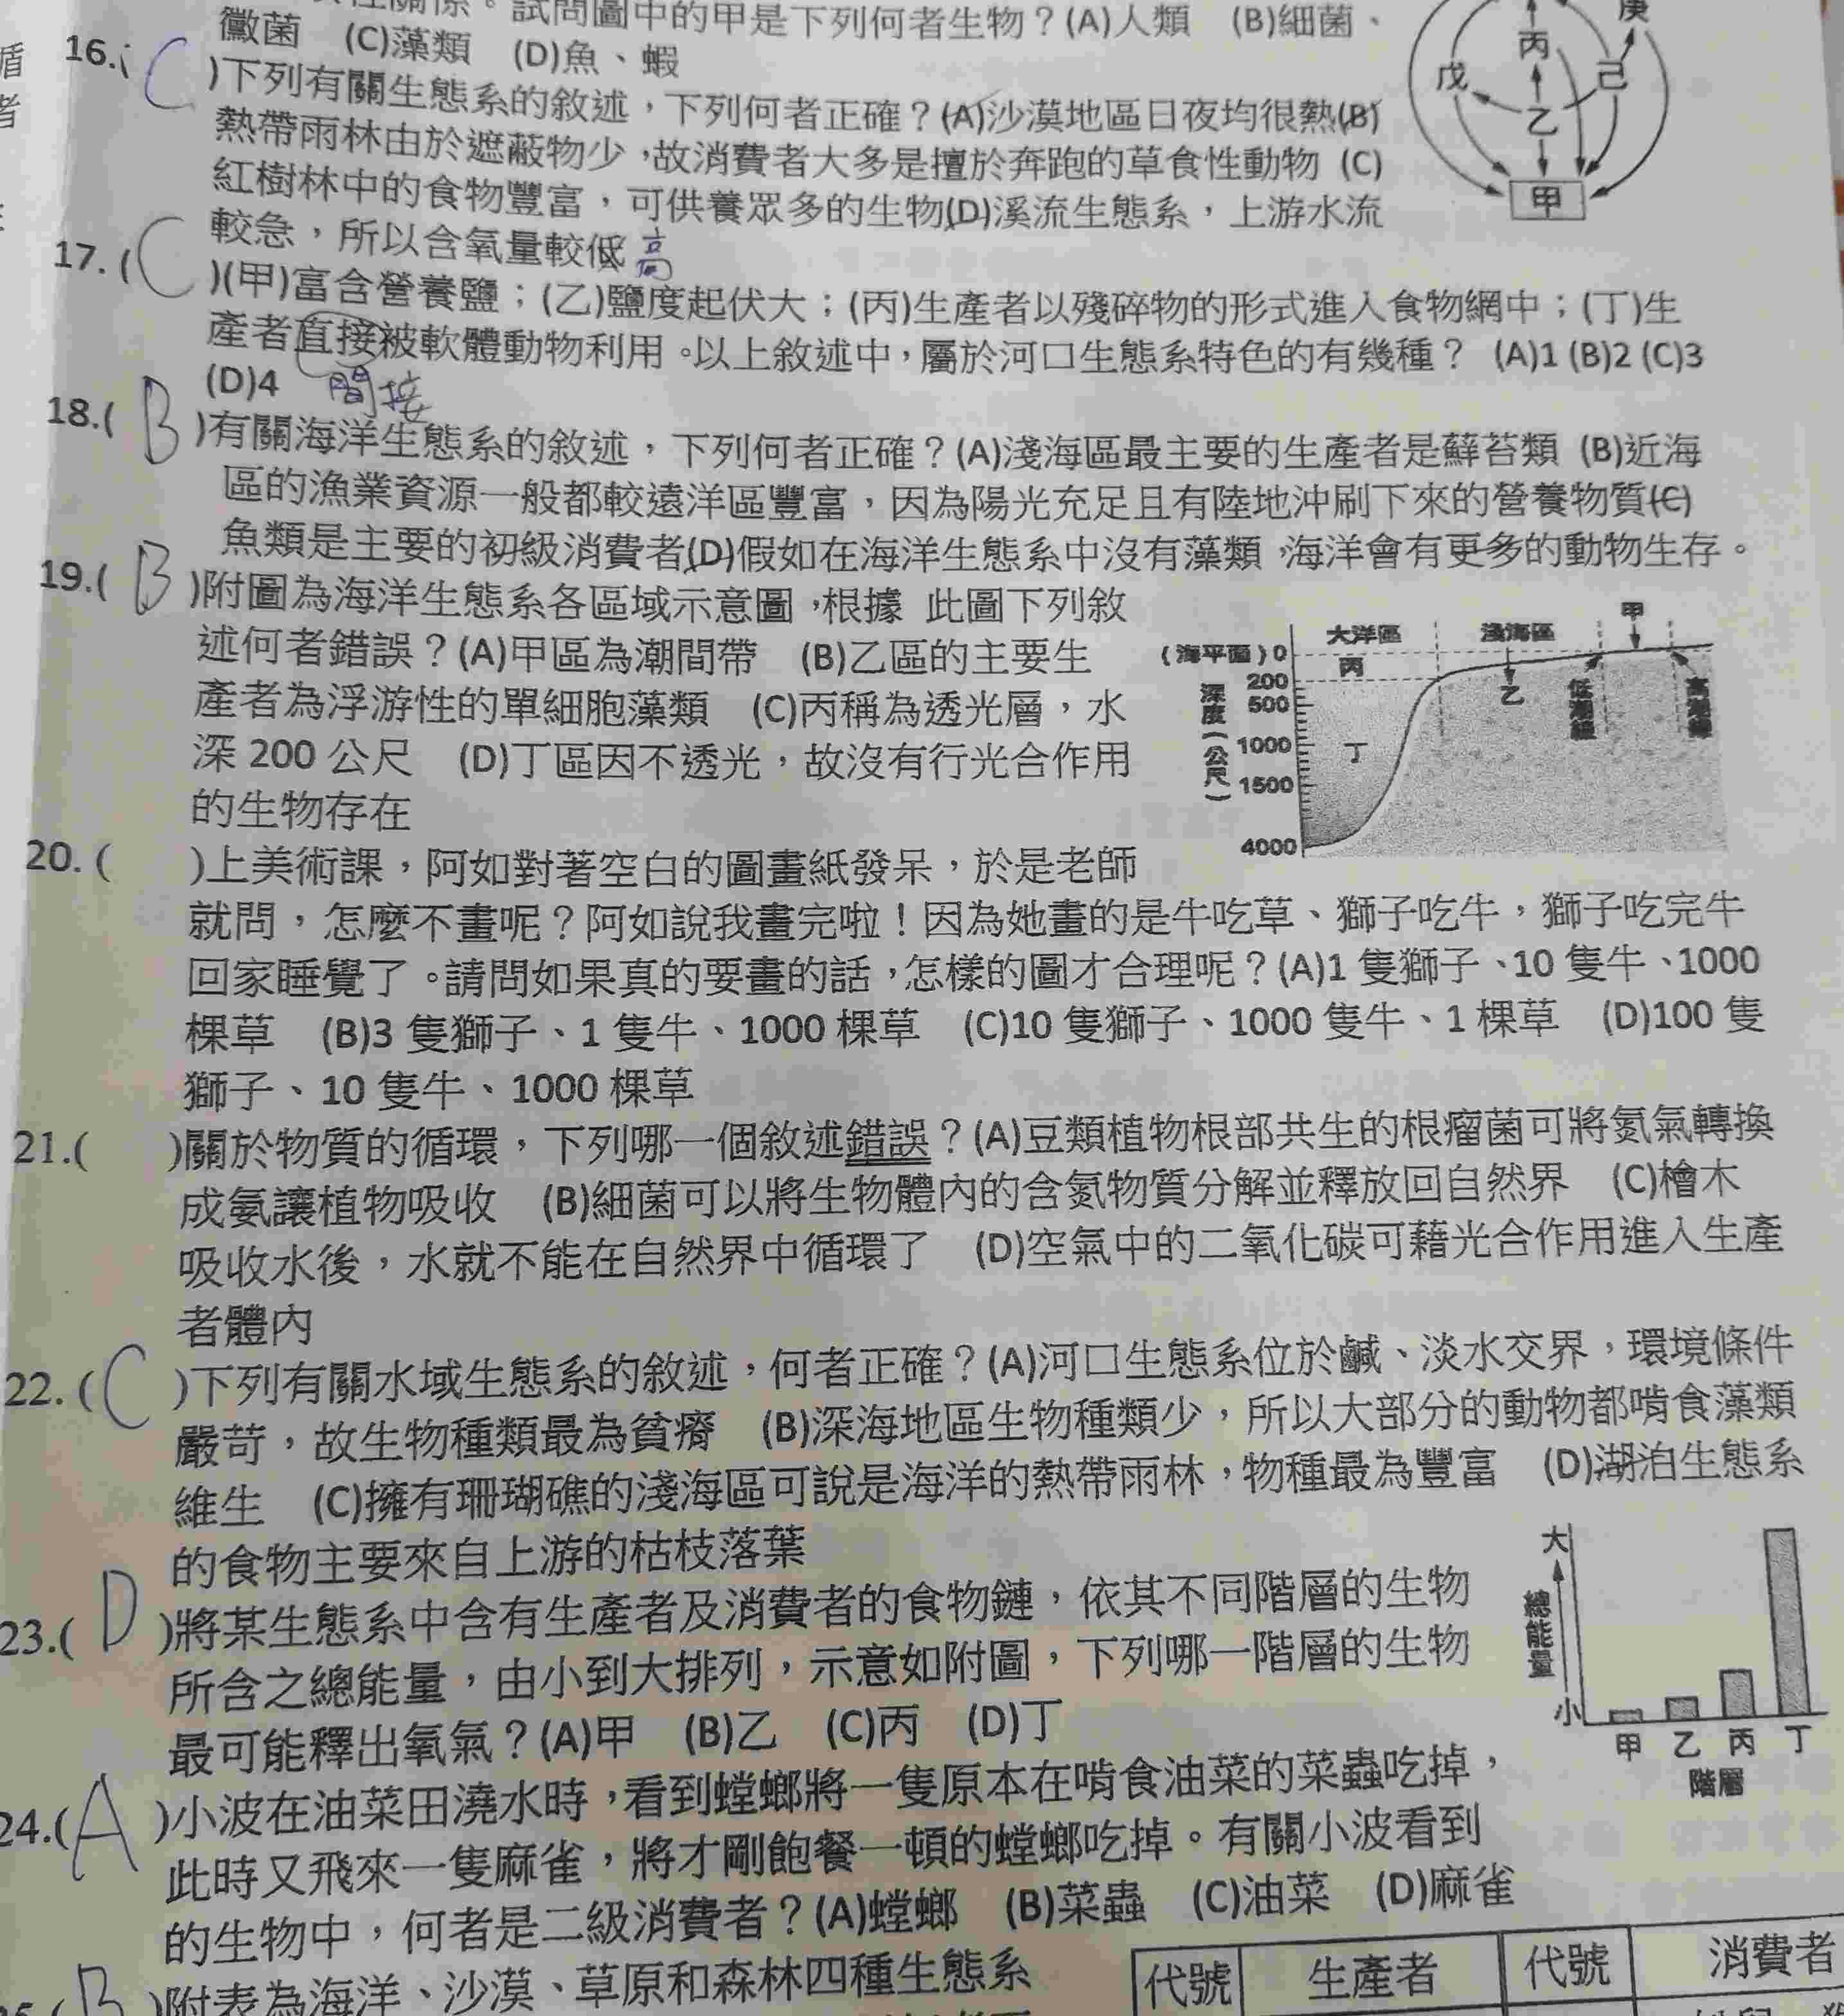 試問圖中的甲是下列何者生物？(A)人類 (B)細菌、
黴菌 (C)藻類 (D)魚、蝦
16.( C )下列有關生態系的敘述，下列何者正確？(A)沙漠地區日夜均很熱(B)
熱帶雨林由於遮蔽物少，故消費者大多是擅於奔跑的草食性動物 (C)
紅樹林中的食物豐富，可供養眾多的生物(D)溪流生態系，上游水流
較急，所以含氧量較低 高
17. ( C )(甲)富含營養鹽；(乙)鹽度起伏大；(丙)生產者以殘碎物的形式進入食物網中；(丁)生
產者直接被軟體動物利用。以上敘述中，屬於河口生態系特色的有幾種？ (A)1 (B)2 (C)3
(D)4 間接
18.( B )有關海洋生態系的敘述，下列何者正確？(A)淺海區最主要的生產者是蘚苔類 (B)近海
區的漁業資源一般都較遠洋區豐富，因為陽光充足且有陸地沖刷下來的營養物質(C)
魚類是主要的初級消費者(D)假如在海洋生態系中沒有藻類，海洋會有更多的動物生存。
19.( B )附圖為海洋生態系各區域示意圖，根據 此圖下列敘
述何者錯誤？(A)甲區為潮間帶 (B)乙區的主要生
產者為浮游性的單細胞藻類 (C)丙稱為透光層，水
深 200 公尺 (D)丁區因不透光，故沒有行光合作用
的生物存在
20. ( )上美術課，阿如對著空白的圖畫紙發呆，於是老師
就問，怎麼不畫呢？阿如說我畫完啦！因為她畫的是牛吃草、獅子吃牛，獅子吃完牛
回家睡覺了。請問如果真的要畫的話，怎樣的圖才合理呢？(A)1 隻獅子、10 隻牛、1000
棵草 (B)3 隻獅子、1 隻牛、1000 棵草 (C)10 隻獅子、1000 隻牛、1 棵草 (D)100 隻
獅子、10 隻牛、1000 棵草
21.( )關於物質的循環，下列哪一個敘述錯誤？(A)豆類植物根部共生的根瘤菌可將氮氣轉換
成氨讓植物吸收 (B)細菌可以將生物體內的含氮物質分解並釋放回自然界 (C)檜木
吸收水後，水就不能在自然界中循環了 (D)空氣中的二氧化碳可藉光合作用進入生產
者體內
22. ( C )下列有關水域生態系的敘述，何者正確？(A)河口生態系位於鹹、淡水交界，環境條件
嚴苛，故生物種類最為貧瘠 (B)深海地區生物種類少，所以大部分的動物都啃食藻類
維生 (C)擁有珊瑚礁的淺海區可說是海洋的熱帶雨林，物種最為豐富 (D)湖泊生態系
的食物主要來自上游的枯枝落葉
23.( D )將某生態系中含有生產者及消費者的食物鏈，依其不同階層的生物
所含之總能量，由小到大排列，示意如附圖，下列哪一階層的生物
最可能釋出氧氣？(A)甲 (B)乙 (C)丙 (D)丁
24.( A )小波在油菜田澆水時，看到螳螂將一隻原本在啃食油菜的菜蟲吃掉，
此時又飛來一隻麻雀，將才剛飽餐一頓的螳螂吃掉。有關小波看到
的生物中，何者是二級消費者？(A)螳螂 (B)菜蟲 (C)油菜 (D)麻雀
( B )附表為海洋、沙漠、草原和森林四種生態系
代號 生產者 代號 消費者
庚
丙
戊 己
乙
甲
大洋區 淺海區 甲
(海平面) 0 丙
200
500 乙 低潮線 高潮線
深度(公尺)
1000 丁
1500
4000
大
總能量
小
甲 乙 丙 丁
階層
循
者